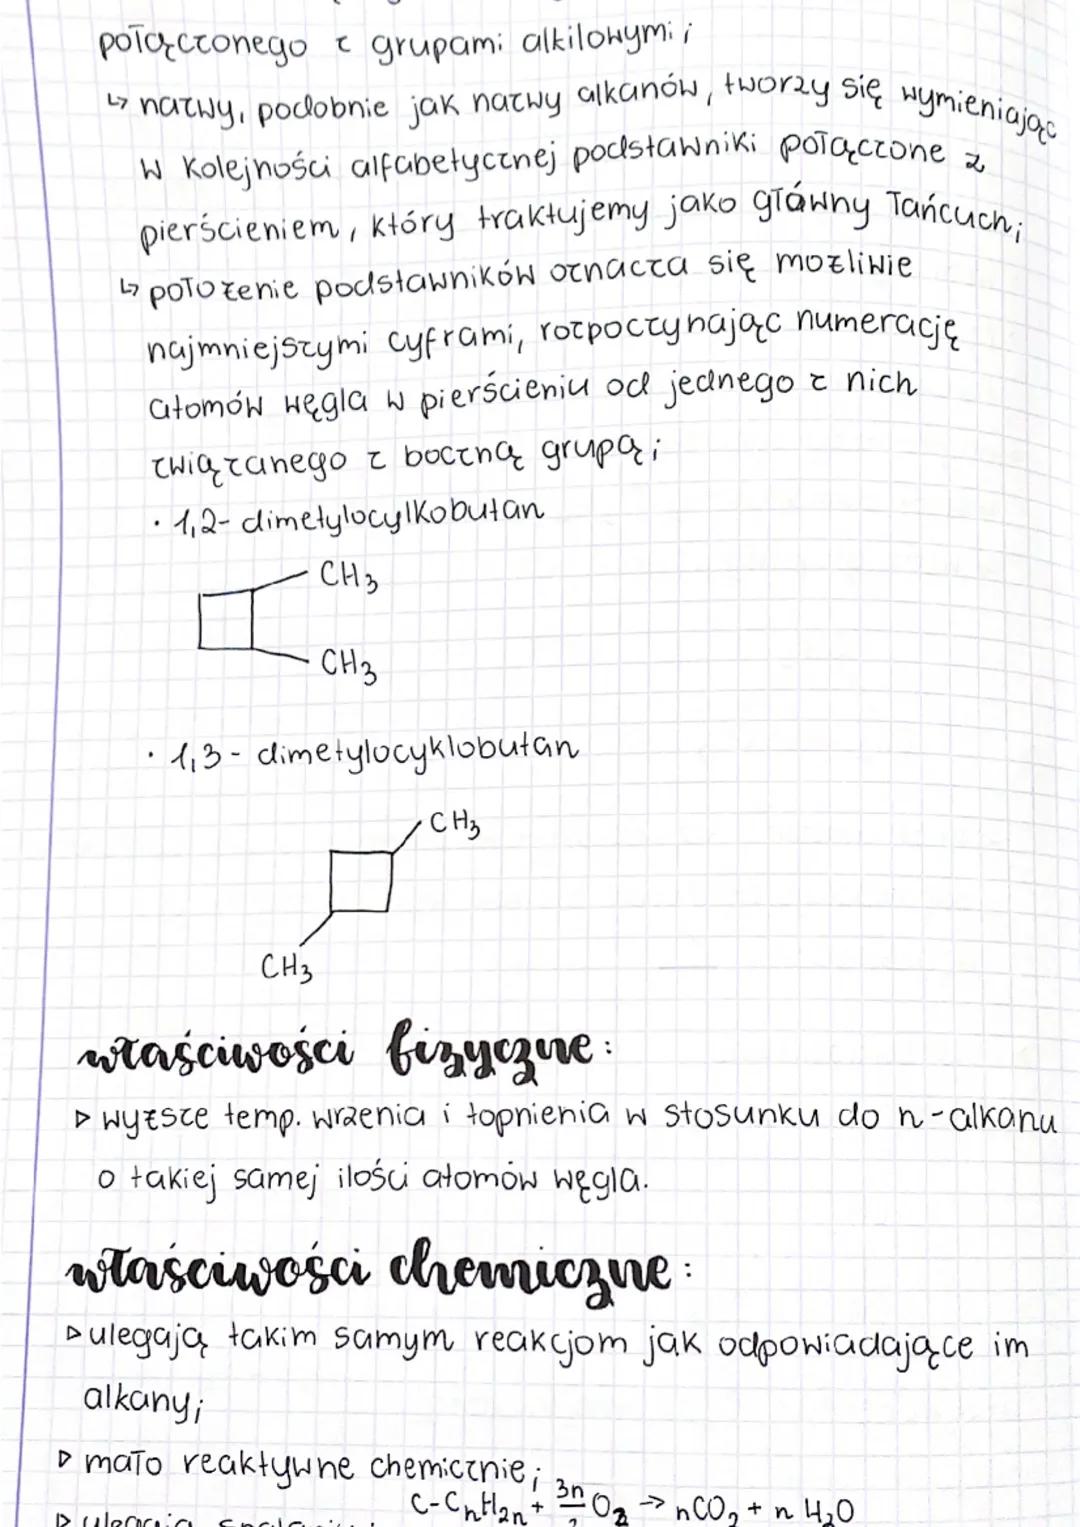 połączonego z grupami alkilowymi;
↳ nazwy, podobnie jak nazwy alkanów, tworzy się wymieniając
w kolejności alfabetycznej podstawniki połączone z
pierścieniem, który traktujemy jako główny łańcuch;
↳ położenie podstawników oznacza się możliwie
najmniejszymi cyframi, rozpoczynając numerację
atomów węgla w pierścieniu od jednego z nich
związanego z boczną grupą;
· 1,2- dimetylocylkobutan
CH3
CH3
· 1,3 - dimetylocyklobutan
CH3
CH3
właściwości fizyczne:
▹ wyższe temp. wrzenia i topnienia w stosunku do n-alkanu
o takiej samej ilości atomów węgla.
właściwości chemiczne:
▹ ulegają takim samym reakcjom jak odpowiadające im
alkany;
▹ mało reaktywne chemicznie;
▹ ulegają C-CnH2n + 3n/2 O2 → nCO2 + n H2O